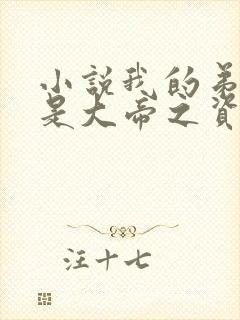 小説我的弟
是大帝之資
汪十七